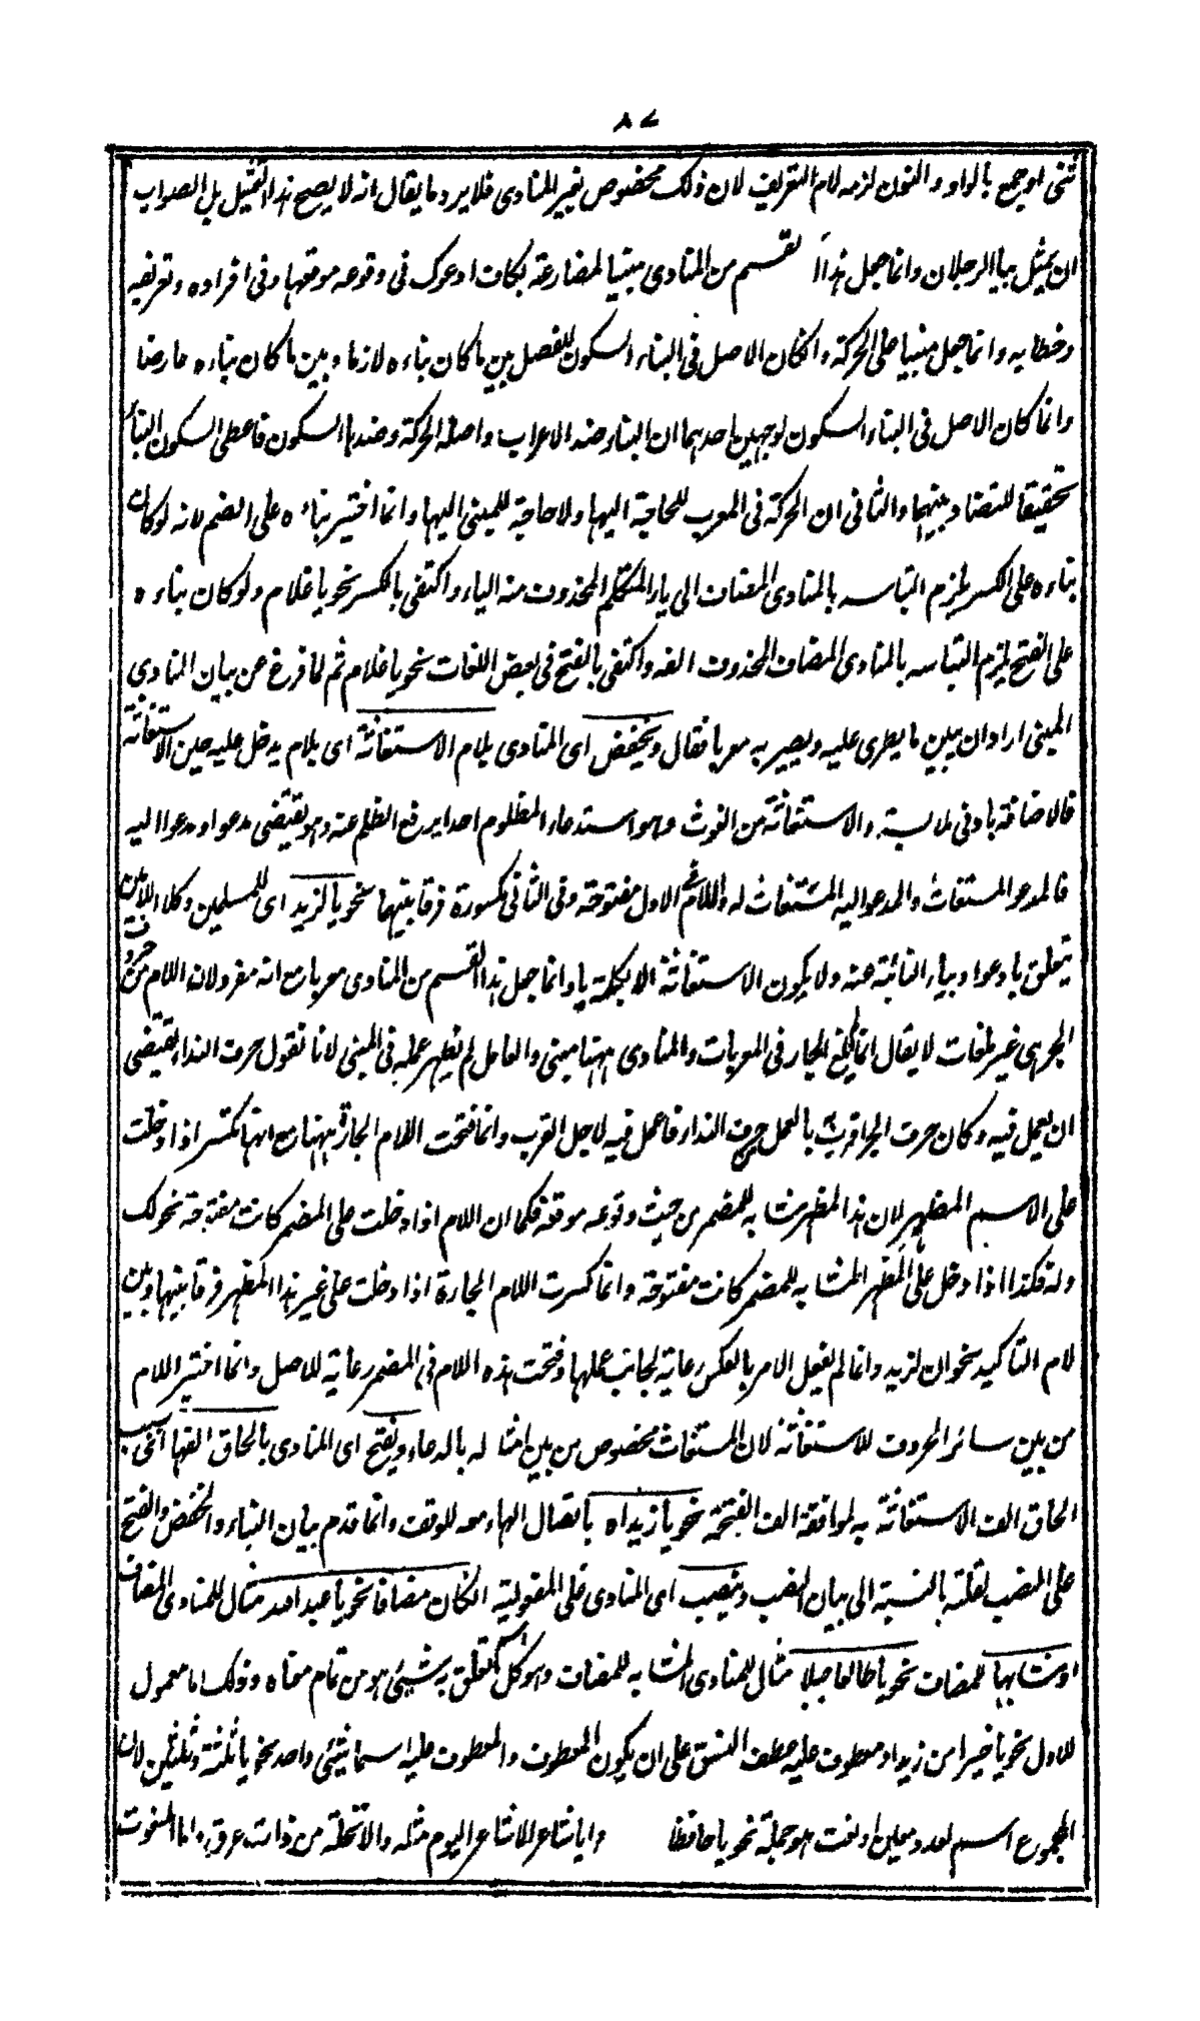 ٨٧
ثنى او جمع بالواو والنون لزمه لام التعريف لان ذلك مخصوص بغير المنادى فلا يرد ما يقال انه لا يصح هذا التمثيل بل الصواب
ان يمثل بيا الرجلان وانما جعل هذا القسم من المنادى مبنيا لمضارعة بكاف ادعوك فى وقوعه موقعها وفى افراده وتعريفه
وخطابه وانما جعل مبنيا على الحركة وان كان الاصل فى البناء السكون للفصل بين ما كان بناءه لازما وبين ما كان بناءه عارضا
وانما كان الاصل فى البناء السكون لوجهين احدهما ان البناء ضد الاعراب واصله الحركة وضدها السكون فاعطى السكون البناء
تحقيقا للتضاد بينهما والثانى ان الحركة فى المعرب للحاجة اليها ولا حاجة للمبنى اليها وانما اختير بناءه على الضم لانه لو كان
بناءه على الكسر يلزم التباسه بالمنادى المضاف الى ياء المتكلم المحذوف منه الياء واكتفى بالكسر نحو يا غلام ولو كان بناءه
على الفتح يلزم التباسه بالمنادى المضاف المحذوف الفه واكتفى بالفتح فى بعض اللغات نحو يا غلام ثم لما فرغ من بيان المنادى
المبنى اراد ان يبين ما يطرى عليه ويصير به معربا فقال ويخفض اى المنادى بلام الاستغاثة اى بلام يدخل عليه حين الاستغاثة
فالاضافة بادنى ملابسة والاستغاثة من الغوث وهو استدعاء المظلوم احدا يرفع الظلم عنه وهو يقتضى مدعوا ومدعوا اليه
فالمدعو المستغاث والمدعو اليه المستغاث له واللام فى الاول مفتوحة وفى الثانى مكسورة فرقا بينهما نحو يا لزيد اى للمسلمين وكلا اللامين
يتعلق بادعوا وبياء النائبة عنه ولا يكون الاستغاثة الا بكلمة يا وانما جعل هذا القسم من المنادى معربا مع انه مفرد لان اللام من حروف
الجر هى غير ملغات لا يقال انما يلغ الجار فى المعربات والمنادى ههنا مبنى والعامل لم يظهر عمله فى المبنى لانا نقول حرف النداء يقتضى
ان يعمل فيه وكان حرف الجر اقرب بالعمل من حرف النداء فاعمل فيه لاجل القرب وانما فتحت اللام الجارة ههنا مع انها تكسر اذا دخلت
على الاسم المظهر لان هذا المظهر مشابه للمضمر من حيث وقوعه موقعه فكما ان اللام اذا دخلت على المضمر كانت مفتوحة نحو لك
وله فكذا اذا دخل على المظهر المشابه للمضمر كانت مفتوحة وانما كسرت اللام الجارة اذا دخلت على غير هذا المظهر فرقا بينها وبين
لام التاكيد نحو ان لزيد وانما لم يفعل الامر بالعكس رعاية لجانب عملها وفتحت هذه اللام فى المضمر رعاية للاصل وانما اختير اللام
من بين سائر الحروف للاستغاثة لان المستغاث مخصوص من بين امثاله بالدعاء ويفتح اى المنادى بالحاق الفها اى بسبب
الحاق الف الاستغاثة به لموافقة الف الفتحة نحو يا زيداه باتصال الهاء معه للوقف وانما قدم بيان البناء والخفض والفتح
على النصب لقلته بالنسبة الى بيان النصب وينصب اى المنادى على المفعولية ان كان مضافا نحو يا عبد الله مثال للمنادى المضاف
او مشابها للمضاف نحو يا طالعا جبلا مثال للمنادى المشابه للمضاف وهو كل اسم تعلق به شيئ هو من تمام معناه وذلك اما معمول
للاول نحو يا خيرا من زيد او معطوف عليه عطف النسق على ان يكون المعطوف والمعطوف عليه اسما لشيئ واحد نحو يا ثلثة وثلثين لان
المجموع اسم لعدد معين او نعت هو جملة نحو يا حافظا وايا شاعر الا شاعر اليوم مثله والا نخلة من ذات عرق واما المنعوت